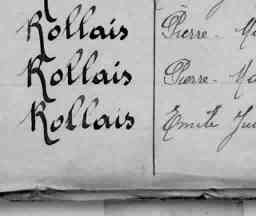 Rollais Pierre - Ma
Rollais Pierre - Ma
Rollais Emile Ju